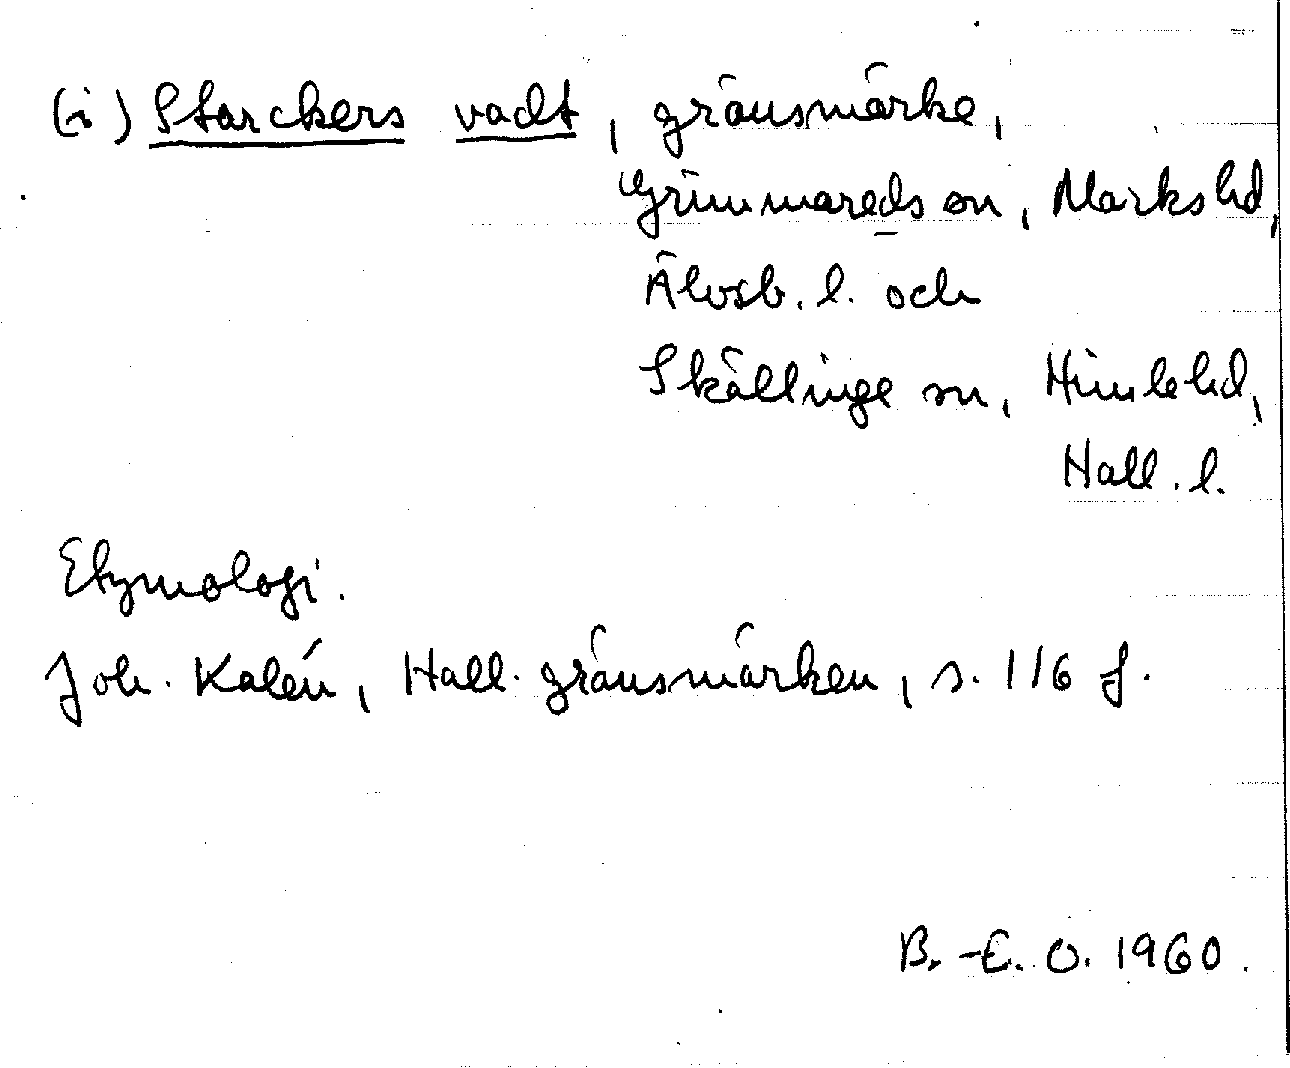 (i) Starckers vadt, gränsmärke,
Grimmareds sn, Marks hd,
Älvsb. l. och
Skällinge sn, Himle hd,
Hall. l.
Etymologi.
Joh. Kalén, Hall. gränsmärken, s. 116 f.
B.-E. O. 1960.